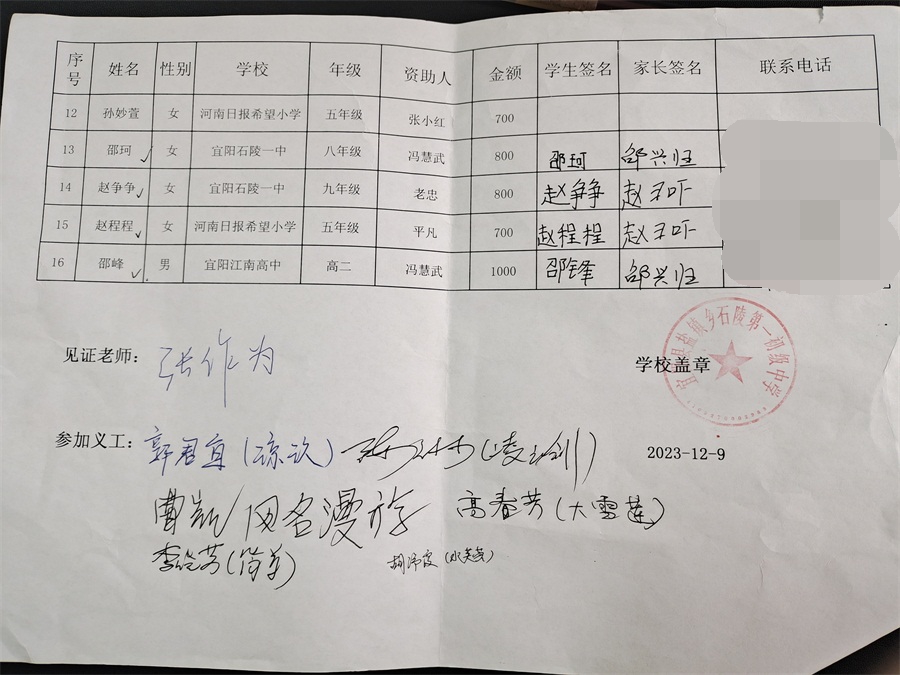 序号 姓名 性别 学校 年级 资助人 金额 学生签名 家长签名 联系电话
12 孙妙萱 女 河南日报希望小学 五年级 张小红 700
13 邵珂 女 宜阳石陵一中 八年级 冯慧武 800 邵珂 邵兴归
14 赵争争 女 宜阳石陵一中 九年级 老忠 800 赵争争 赵
15 赵程程 女 河南日报希望小学 五年级 平凡 700 赵程程 赵
16 邵峰 男 宜阳江南高中 高二 冯慧武 1000 邵锋 邵兴归
宜阳县盐镇乡石陵第一初级中学
见证老师： 张作为
学校盖章
参加义工： 郭君宜
2023-12-9
曹凯 网名漫游 高春芳（大雪莲）
李俊芳（简单）